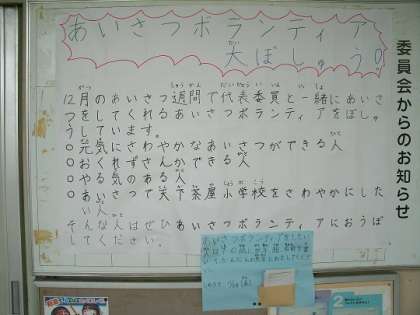 あいさつボランティア
大ぼしゅう!!
委員会からのお知らせ
12月のあいさつ週間で代表委員と一緒にあいさ
つをしてくれるあいさつボランティアをぼし。
うしています。
○元気にさわやかなあいさつができる人
○おくれずさんかできる人
○やる気のある人
○あいさつで天下茶屋小学校をさわやかにした
い人
そんな人はぜひあいさつボランティアにおうぼ
してください。
あいさつボランティアをしたい